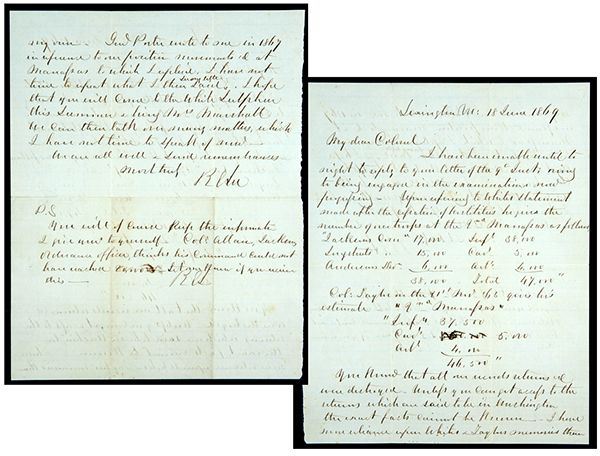 my own. Genl Porter wrote to me in 1867
in reference to our position movements &c at
Manassas to which I replied. I have not
time to repeat what I then said. I hope
that you will come to the White Sulphur
this Summer & bring Mrs Marshall
We can then talk over many matters, which
I have not time to speak of now
We are all well & send remembrances
Most truly
R E Lee
P.S.
You will of course keep the information
I give you to yourself. Col: Allan, Jacksons
Ordnance officer thinks his Command could not
have reached
this
R E L
Lexington Va: 18 June 1869
My dear Colonel
I have been unable until to
night to reply to your letter of the 9th owing
to being engaged in the examinations now
progressing. Upon refering to Statement
made after the cessation of hostilities he gives the
number of our troops at the 2nd Manassas as follows
Jacksons Com: 17,000 Inf: 38,000
Longstreets " 15,000 Cav: 5,000
Andersons Div: 6,000 Art: 4,000
38,000 Total 47,000 "
Col: Taylor in the gives his
estimate " 2nd Manassas "
"Inf: 37,500
Cav: 5,000
Art: 4,000
46,500 "
You know that all our records returns &c
were destroyed. Unless you can get access to the
returns which are said to be in Washington
the exact facts cannot be known. I have
more reliance upon & Taylors memories than